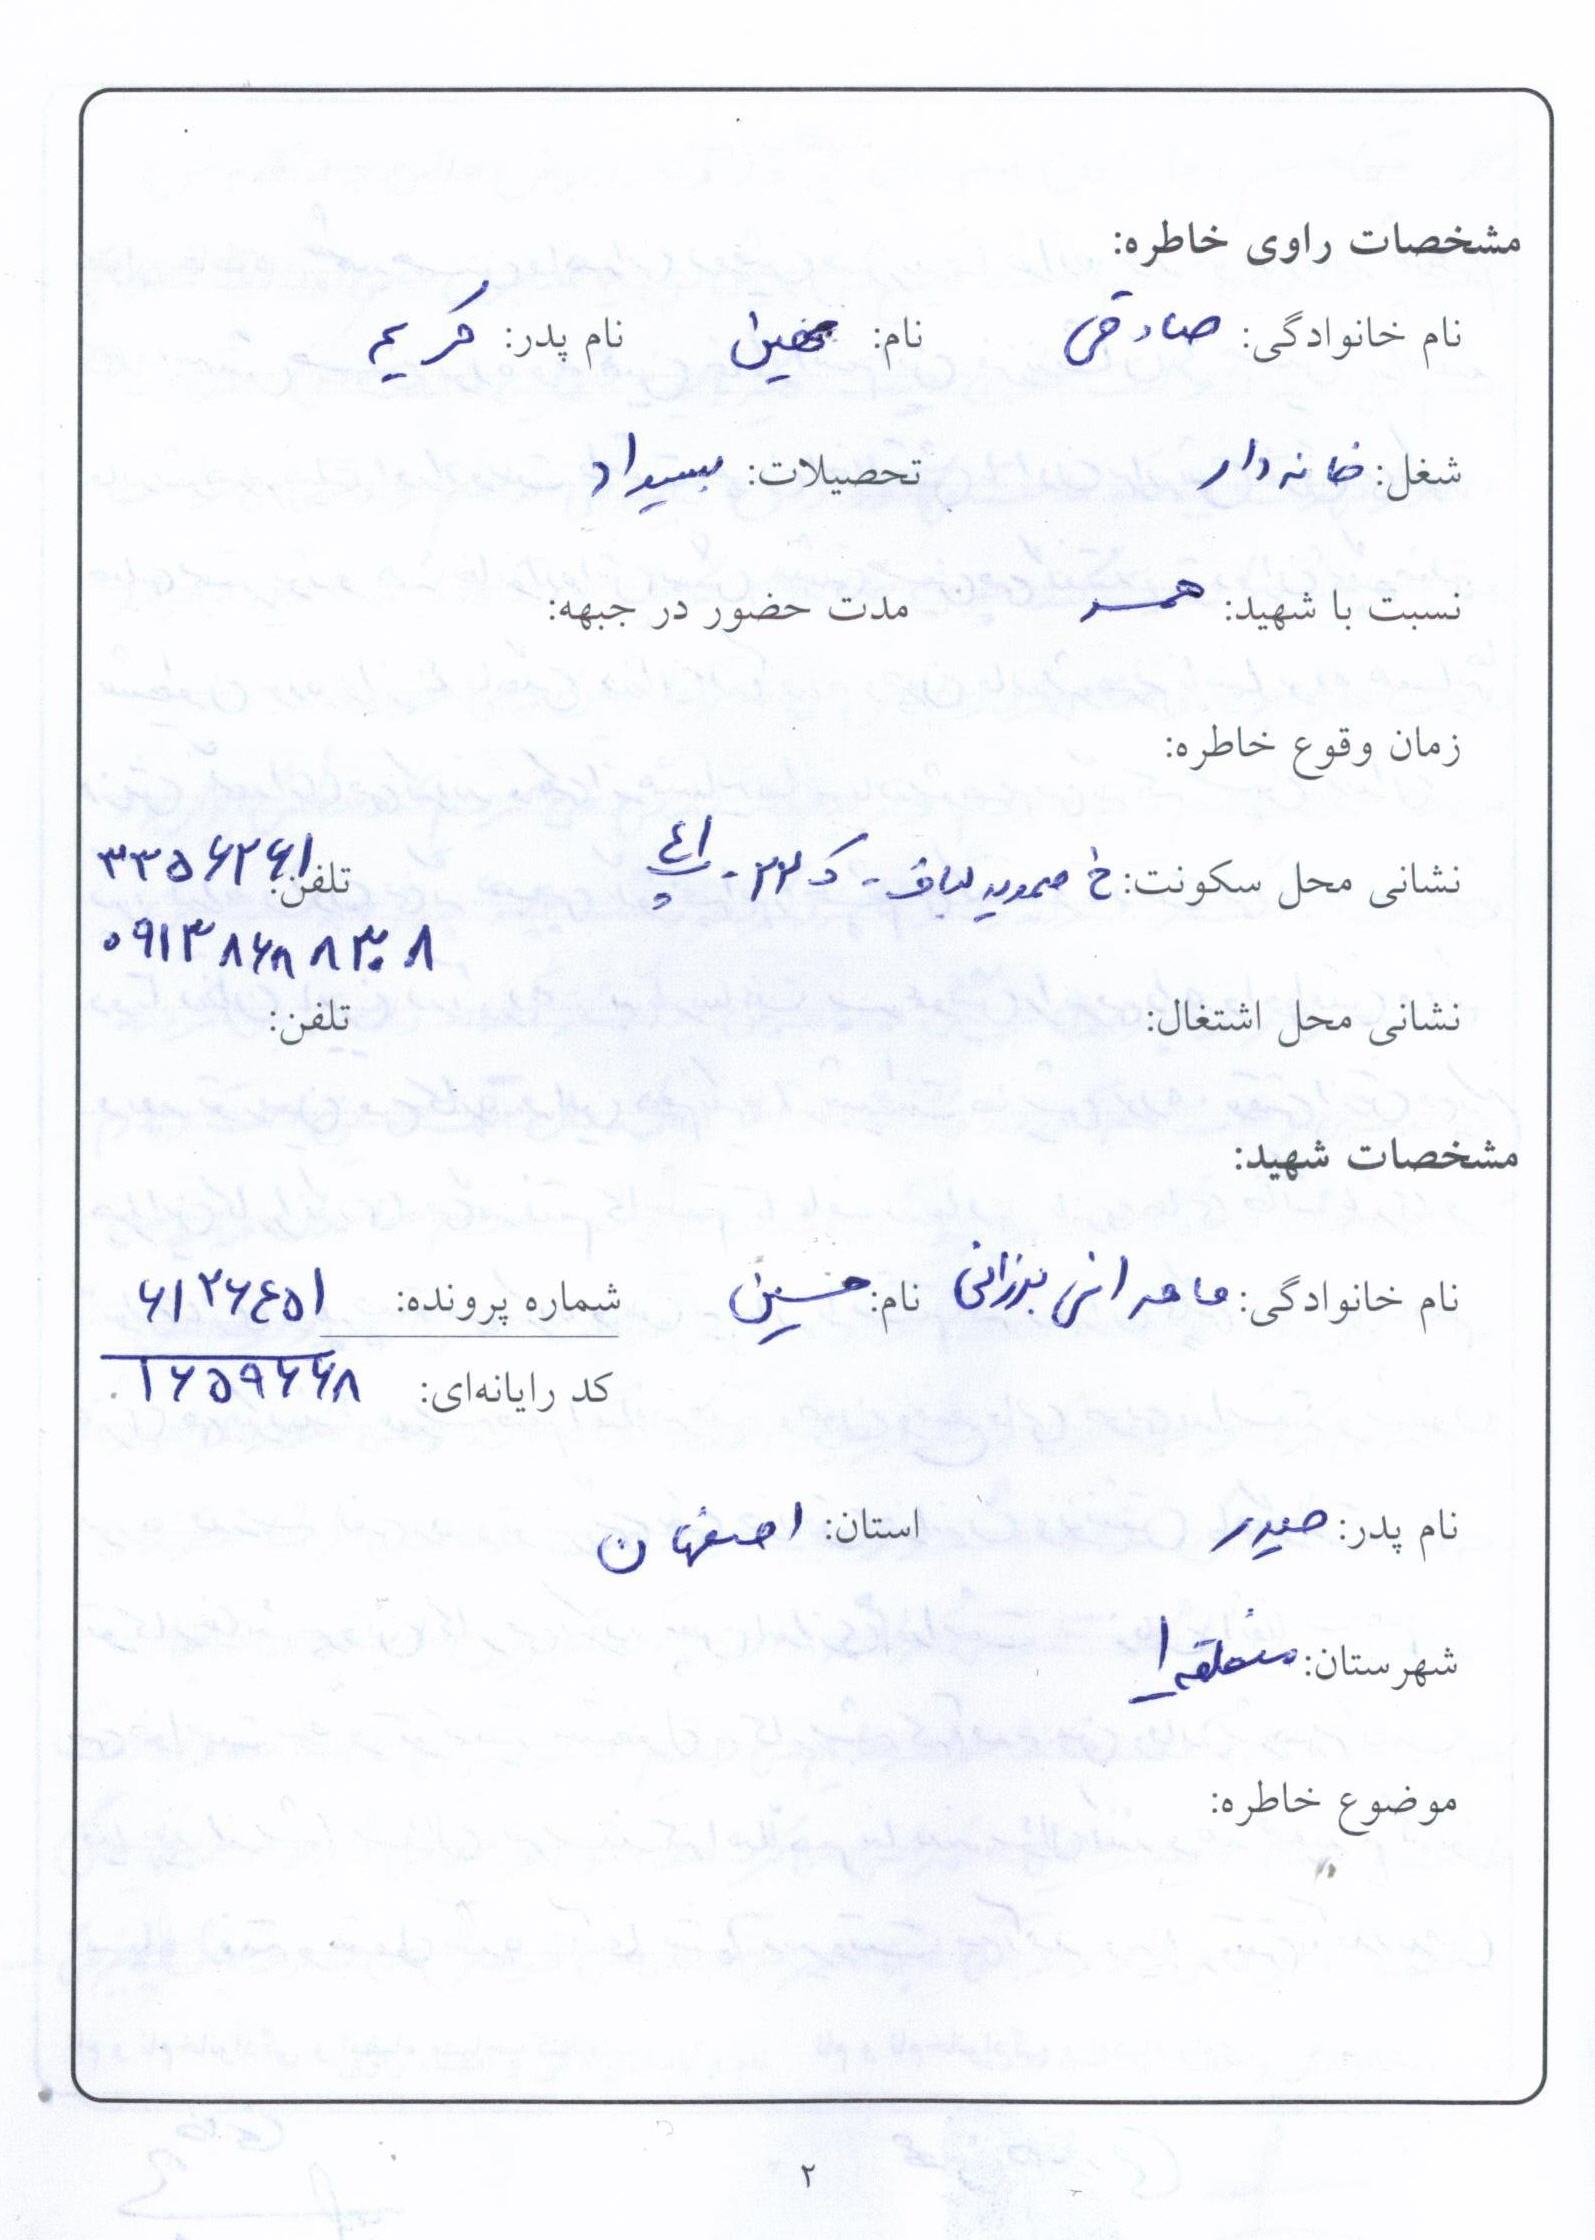 مشخصات راوی خاطره:
نام خانوادگی: صادقی نام: مهین نام پدر: کریم
شغل: خانه دار تحصیلات: بیسواد
نسبت با شهید: همسر مدت حضور در جبهه:
زمان وقوع خاطره:
نشانی محل سکونت: خ صمدیه لباف - ک ۲۲ - پ ۴۱ تلفن: ۳۳۵۶۲۶۱
۰۹۱۳۸۶۸۸۳۰۸
نشانی محل اشتغال: تلفن:
مشخصات شهید:
نام خانوادگی: ماهرانی برزانی نام: حسین شماره پرونده: ۶۱۲۶۴۵۱
کد رایانه‌ای: ۱۶۵۹۶۶۸
نام پدر: حیدر استان: اصفهان
شهرستان: منطقه ۱
موضوع خاطره:
۲